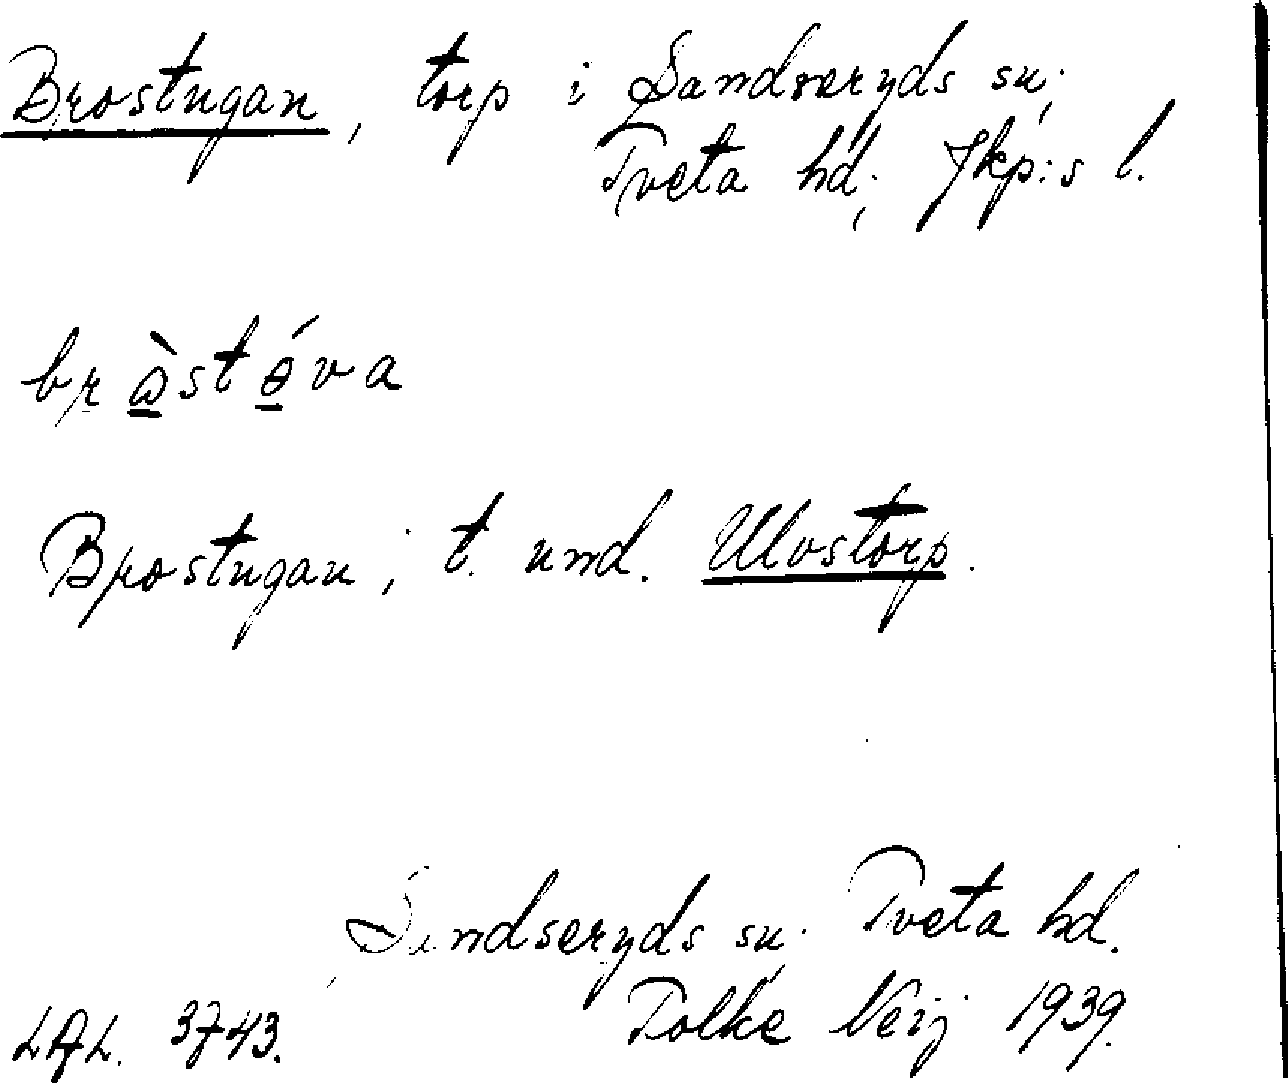 Brostugan, torp i Sandseryds sn,
Tveta hd, Jkp:s l.
br̥ɷ̠̀stɵ̠́va
Brostugan, t. und. Ulvstorp.
Sandseryds sn. Tveta hd.
LAL. 3743. Folke Neij 1939.